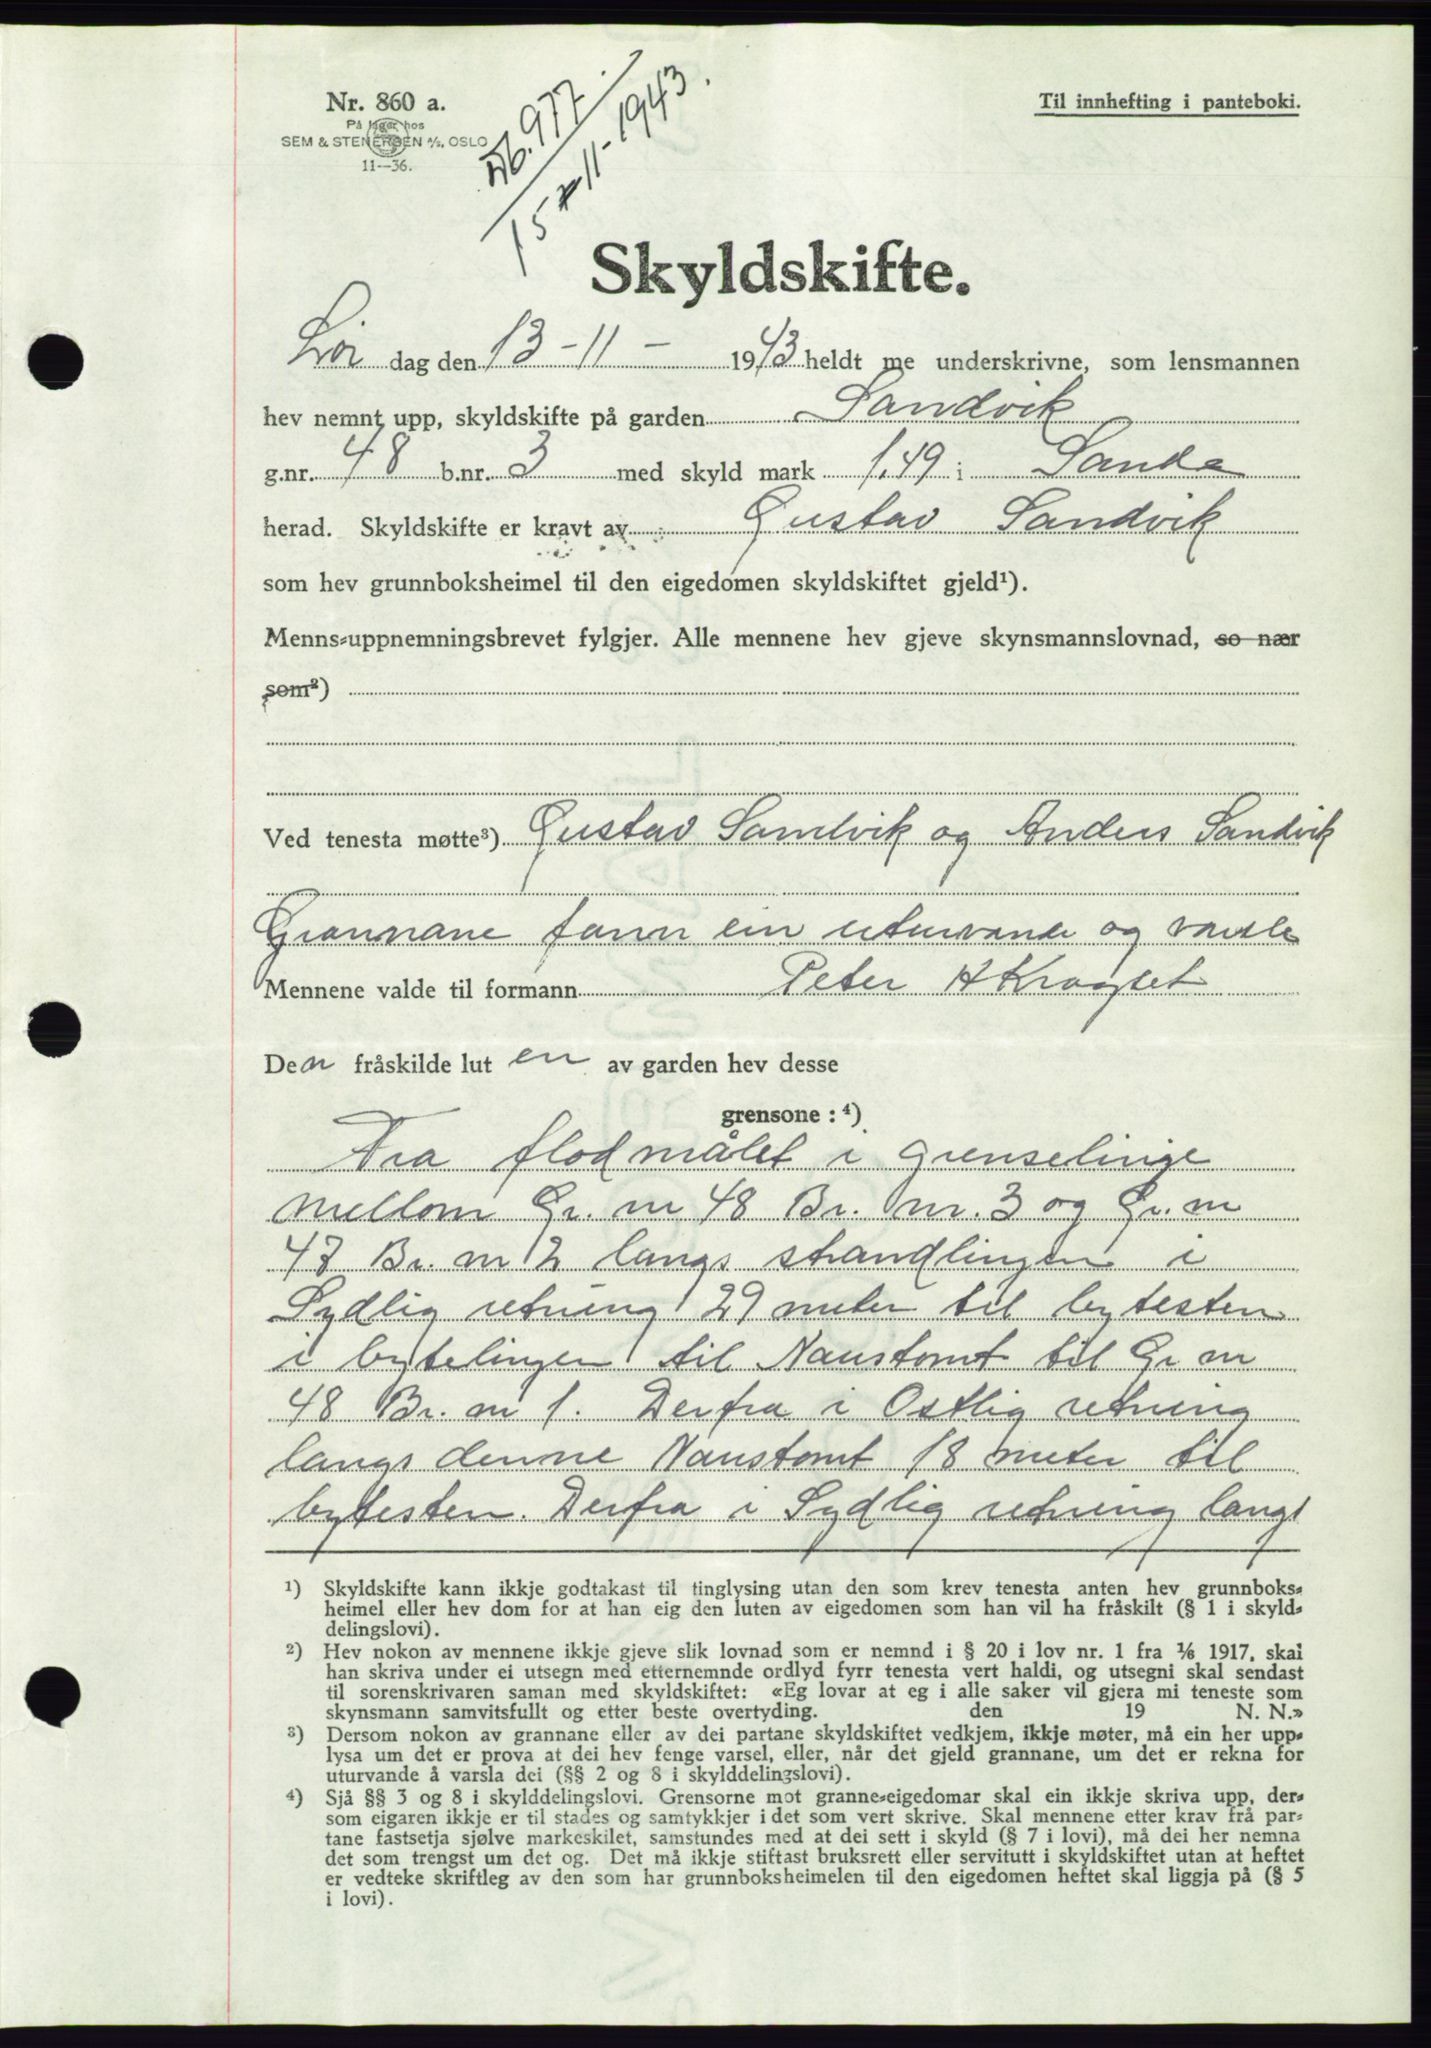 Nr. 860 a.
På lager hos
SEM & STENERSEN A/S, OSLO
11—36.
Til innhefting i panteboki.
Nb. 977.
15-11-1943.
Skyldskifte.
Lør dag den 13-11- 1943 heldt me underskrivne, som lensmannen
hev nemnt upp, skyldskifte på garden Sandvik
g.nr. 48 b.nr. 3 med skyld mark 1,49 i Sande
herad. Skyldskifte er kravt av Gustav Sandvik
som hev grunnboksheimel til den eigedomen skyldskiftet gjeld¹).
Menns-uppnemningsbrevet fylgjer. Alle mennene hev gjeve skynsmannslovnad, so nær
som²)
Ved tenesta møtte³) Gustav Sandvik og Anders Sandvik
Grannane fann ein uturvande og varsle
Mennene valde til formann Peter H Kragset
Den fråskilde lut en av garden hev desse
grensone : ⁴)
Fra flodmålet i grenselinje
mellom Gr. nr 48 Br. nr. 3 og Gr. nr
47 Br. nr 2 langs strandlingen i
Sydlig retning 29 meter til bytesten
i bytelinjen til Naustomt til Gr nr
48 Br. nr 1. Derfra i Ostlig retning
langs denne Naustomt 18 meter til
bytesten. Derfra i Sydlig retning langs
¹) Skyldskifte kann ikkje godtakast til tinglysing utan den som krev tenesta anten hev grunnboks-
heimel eller hev dom for at han eig den luten av eigedomen som han vil ha fråskilt (§ 1 i skyld-
delingslovi).
²) Hev nokon av mennene ikkje gjeve slik lovnad som er nemnd i § 20 i lov nr. 1 fra ¹/₆ 1917, skal
han skriva under ei utsegn med etternemnde ordlyd fyrr tenesta vert haldi, og utsegni skal sendast
til sorenskrivaren saman med skyldskiftet: «Eg lovar at eg i alle saker vil gjera mi teneste som
skynsmann samvitsfullt og etter beste overtyding. den 19 N. N.»
³) Dersom nokon av grannane eller av dei partane skyldskiftet vedkjem, ikkje møter, må ein her upp-
lysa um det er prova at dei hev fenge varsel, eller, når det gjeld grannane, um det er rekna for
uturvande å varsla dei (§§ 2 og 8 i skylddelingslovi).
⁴) Sjå §§ 3 og 8 i skylddelingslovi. Grensorne mot granne-eigedomar skal ein ikkje skriva upp, der-
som eigaren ikkje er til stades og samtykkjer i det som vert skrive. Skal mennene etter krav frå par-
tane fastsetja sjølve markeskilet, samstundes med at dei sett i skyld (§ 7 i lovi), må dei her nemna
det som trengst um det og. Det må ikkje stiftast bruksrett eller servitutt i skyldskiftet utan at heftet
er vedteke skriftleg av den som har grunnboksheimelen til den eigedomen heftet skal liggja på (§ 5
i lovi).